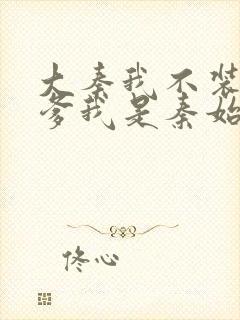 大秦我不装
爹我是秦始
佟心